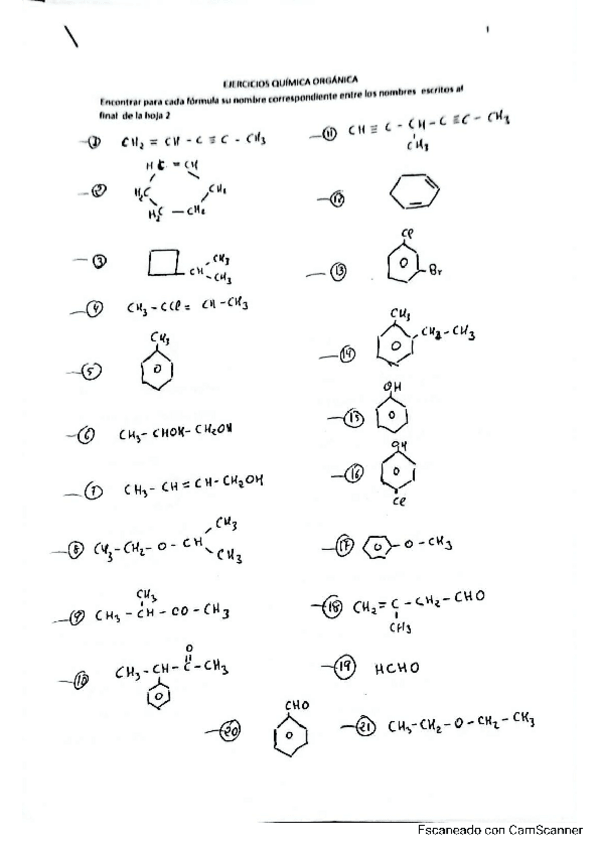 1
EJERCICIOS QUÍMICA ORGÁNICA
Encontrar para cada fórmula su nombre correspondiente entre los nombres escritos al
final de la hoja 2
① CH₂ = CH - C ≡ C - CH₃
⑪ CH ≡ C - CH - C ≡ C - CH₃
CH₃
②
HC = CH
H₂C CH₂
H₂C - CH₂
⑫
③
CH CH₃ CH₃
⑬
Cl
Br
④ CH₃ - CCl = CH - CH₃
⑤
CH₃
⑭
CH₃
CH₂ - CH₃
⑥ CH₃ - CHOH - CH₂OH
⑮
OH
⑦ CH₃ - CH = CH - CH₂OH
⑯
OH
Cl
⑧ CH₃ - CH₂ - O - CH CH₃ CH₃
⑰ O - CH₃
⑨ CH₃ - CH - CO - CH₃
CH₃
⑱ CH₂ = C - CH₂ - CHO
CH₃
⑩ CH₃ - CH - C - CH₃
O
⑲ HCHO
⑳
CHO
㉑ CH₃ - CH₂ - O - CH₂ - CH₃
Escaneado con CamScanner